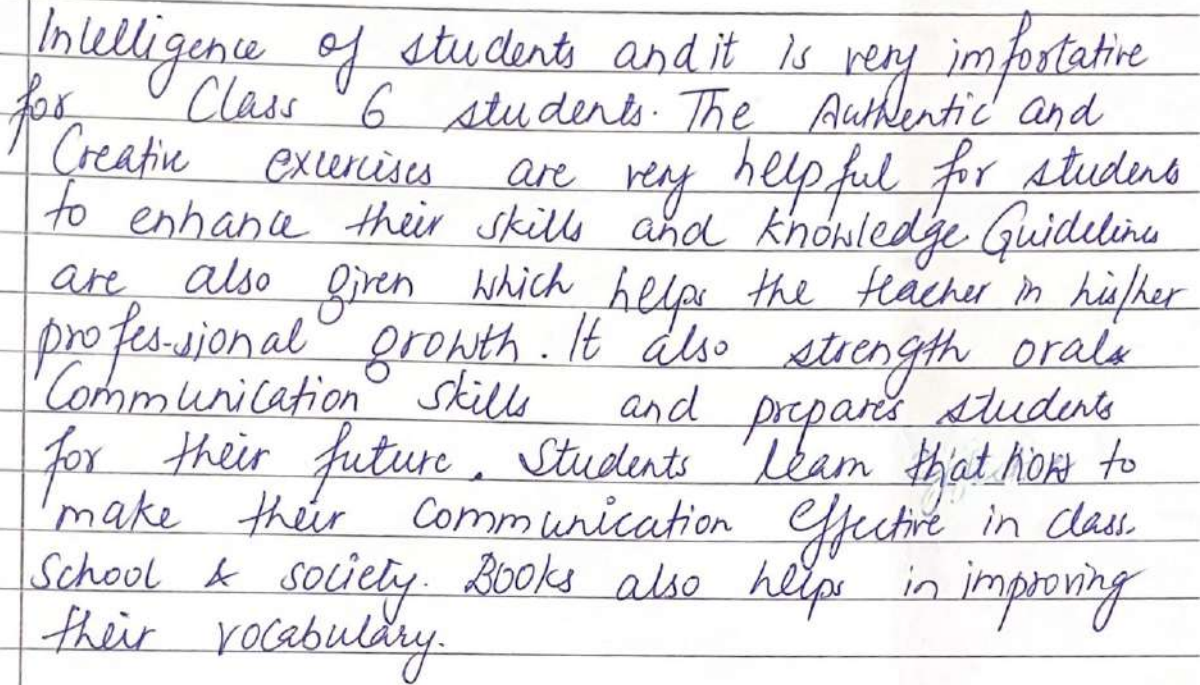 Intelligence of students and it is very imfortative
for Class 6 students. The Authentic and
Creative exercises are very helpful for students
to enhance their skills and knowledge. Guidelines
are also given which helps the teacher in his/her
profes-sional growth. It also strength oral &
Communication skills and prepares students
for their future. Students learn that how to
make their communication effective in class.
School & society. Books also helps in improving
their vocabulary.